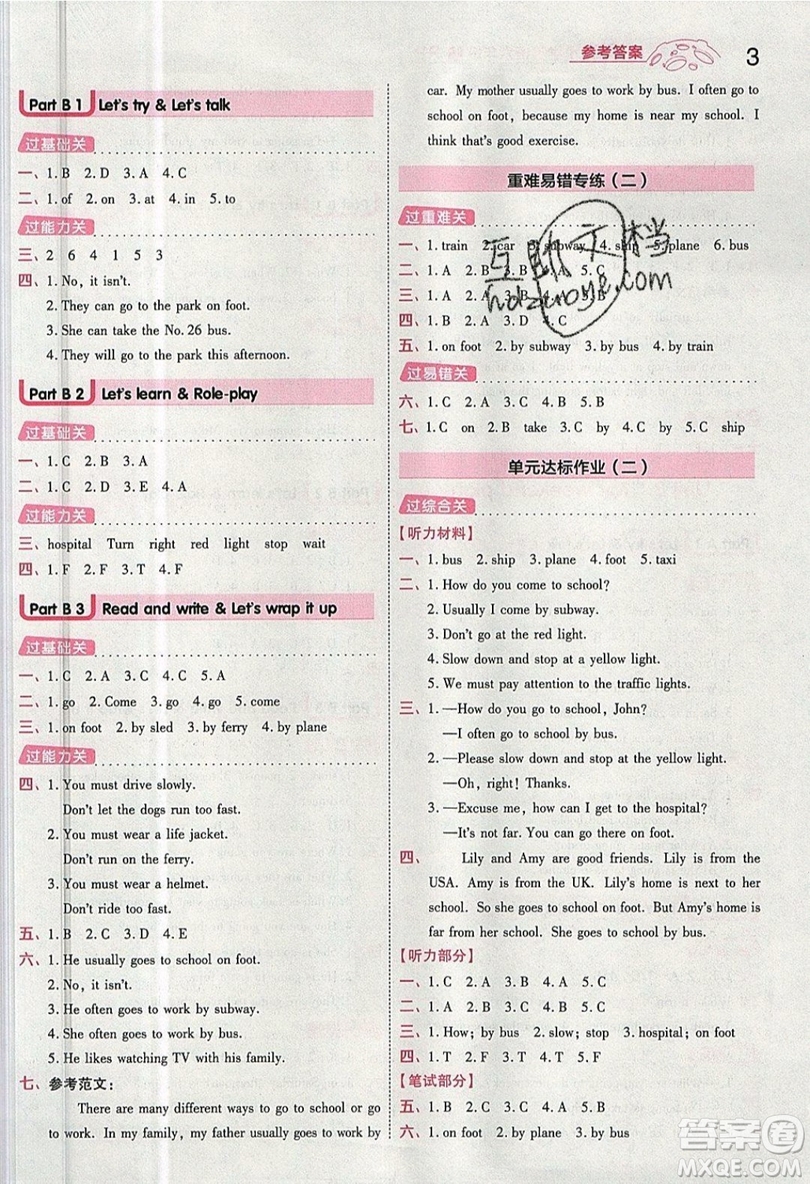 参考答案
3
Part B 1 Let's try & Let's talk
过基础关
一、1. B 2. D 3. A 4. C
二、1. of 2. on 3. at 4. in 5. to
过能力关
三、2 6 4 1 5 3
四、1. No, it isn't.
2. They can go to the park on foot.
3. She can take the No. 26 bus.
4. They will go to the park this afternoon.
Part B 2 Let's learn & Role-play
过基础关
一、1. C 2. B 3. A
二、1. C 2. B 3. D 4. E 5. A
过能力关
三、hospital Turn right red light stop wait
四、1. F 2. F 3. T 4. F
Part B 3 Read and write & Let's wrap it up
过基础关
一、1. C 2. B 3. C 4. B 5. A
二、1. go 2. Come 3. go 4. go 5. come
三、1. on foot 2. by sled 3. by ferry 4. by plane
过能力关
四、1. You must drive slowly.
Don't let the dogs run too fast.
2. You must wear a life jacket.
Don't run on the ferry.
3. You must wear a helmet.
Don't ride too fast.
五、1. B 2. C 3. D 4. E
六、1. He usually goes to school on foot.
2. No, it isn't.
3. He often goes to work by subway.
4. She often goes to work by bus.
5. He likes watching TV with his family.
七、参考范文：
There are many different ways to go to school or go
to work. In my family, my father usually goes to work by
car. My mother usually goes to work by bus. I often go to
school on foot, because my home is near my school. I
think that's good exercise.
重难易错专练（二）
过重难关
一、1. train 2. car 3. subway 4. ship 5. plane 6. bus
二、1. A 2. B 3. B 4. A 5. C
三、1. A 2. A 3. B 4. B 5. B
四、1. B 2. A 3. D 4. C
五、1. on foot 2. by subway 3. by bus 4. by train
过易错关
六、1. C 2. A 3. C 4. S 5. B
七、1. C on 2. B take 3. B by 4. C ship
单元达标作业（二）
过综合关
【听力材料】
一、1. bus 2. ship 3. plane 4. foot 5. taxi
二、1. How do you come to school?
2. Usually I come by subway.
3. Don't go at the red light.
4. Slow down and stop at a yellow light.
5. We must pay attention to the traffic lights.
三、1. —How do you go to school, John?
—I often go to school by bus.
2. —Please slow down and stop at a yellow light.
—Oh, right! Thanks.
3. —Excuse me, how can I get to the hospital?
—It's not far. You can go there on foot.
四、Lily and Amy are good friends. Lily is from the
USA. Amy is from the UK. Lily's home is next to her
school. So she goes to school on foot. But Amy's home is
far from her school, so she often goes to school by bus.
【听力部分】
一、1. C 2. A 3. B 4. A 5. C
二、1. C 2. A 3. B 4. B 5. A
三、1. How; by bus 2. slow; stop 3. hospital; on foot
四、1. T 2. F 3. T 4. T 5. F
【笔试部分】
五、1. B 2. C 3. D 4. A 5. C
六、1. on foot 2. by taxi 3. by bus 4. by plane
互助文档
hdzuoye.com
答案圈
MXQE.COM